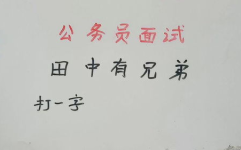 公务员面试
田中有兄弟
打一字